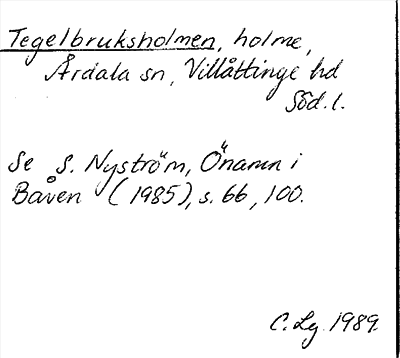 Tegelbruksholmen, holme,
Årdala sn, Villåttinge hd
Söd. l.
Se S. Nyström, Önamn i
Båven (1985), s. 66, 100.
C. Lg. 1989.